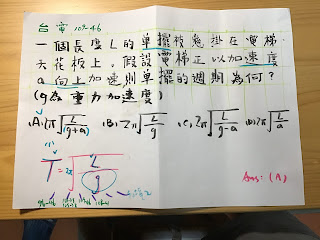 台電 107-46
一個長度L的單擺被懸掛在電梯
天花板上。假設電梯正以加速度
a向上加速,則單擺的週期為何?
(g為重力加速度)
(A) 2π√(L/(g+a)) (B) 2π√(L/g) (C) 2π√(L/(g-a)) (D) 2π√(L/a)
T = 2π√(L/g)
Ans: (A)